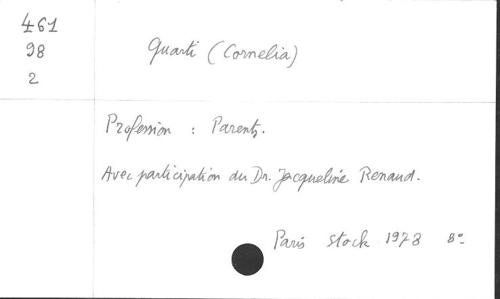 461
98
2
Quarti (Cornelia)
Profession : Parents.
Avec participation du Dr. Jacqueline Renaud.
Paris stock 1978 8°